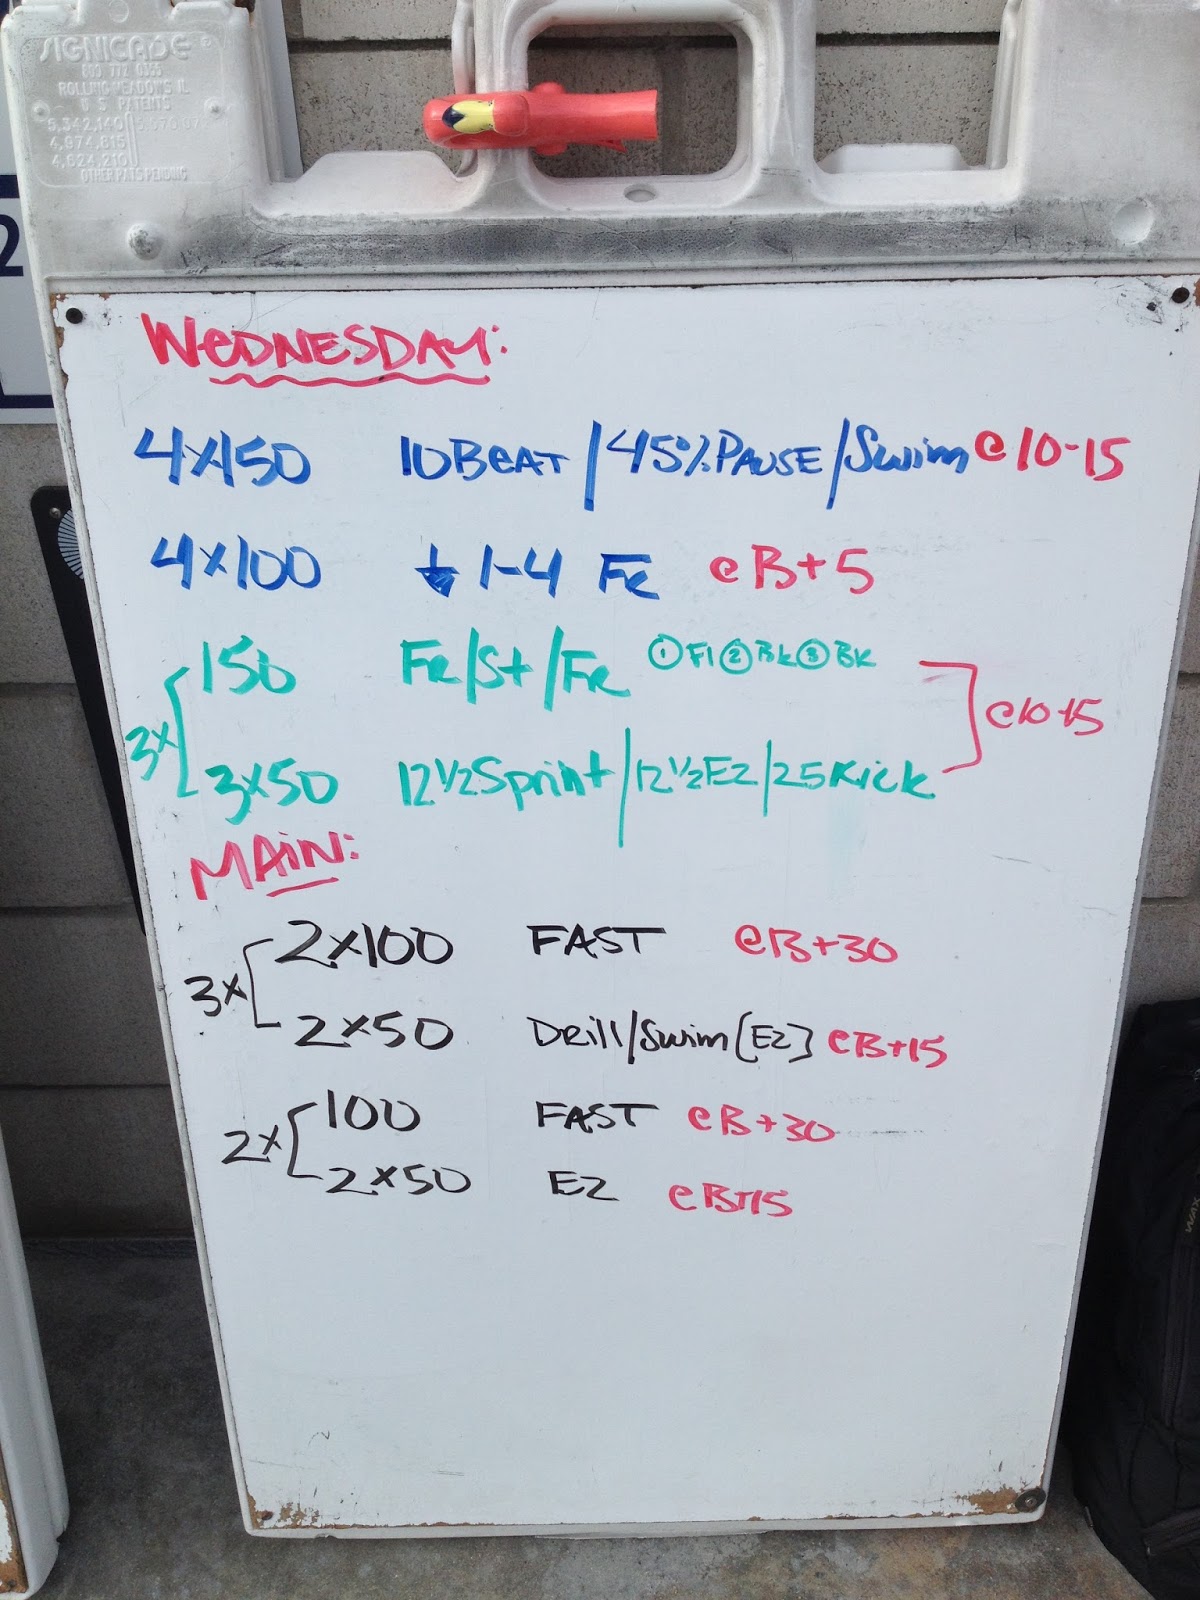 SIGNICADE
800 772 0355
ROLLING MEADOWS IL
U S PATENTS
5,342,140
4,974,815
4,624,210
OTHER PATS PENDING
2
WEDNESDAY:
4x150 10BEAT / 45%PAUSE / Swim @10-15
4x100 ↓ 1-4 FR @B+5
3x 150 FR/St/FR ① Fl ② Bk ③ BK
@10-15
3x50 12 1/2 Sprint / 12 1/2 EZ / 25 Kick
MAIN:
3x 2x100 FAST @B+30
2x50 Drill/Swim [EZ] @B+15
2x 100 FAST @B+30
2x50 EZ @B+15